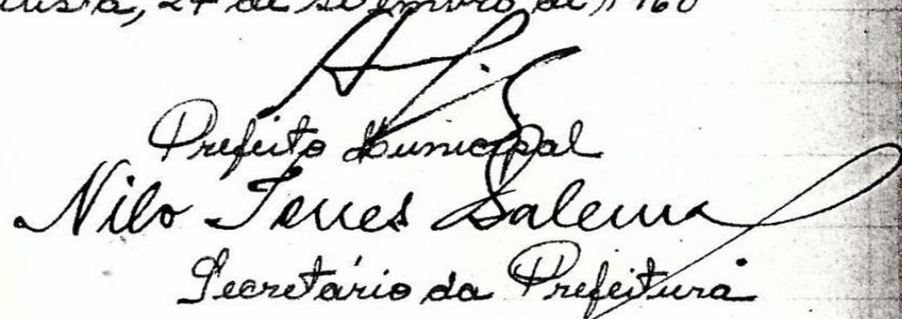 27 de setembro de 1960
Prefeito Municipal
Nilo Salema
Secretário da Prefeitura